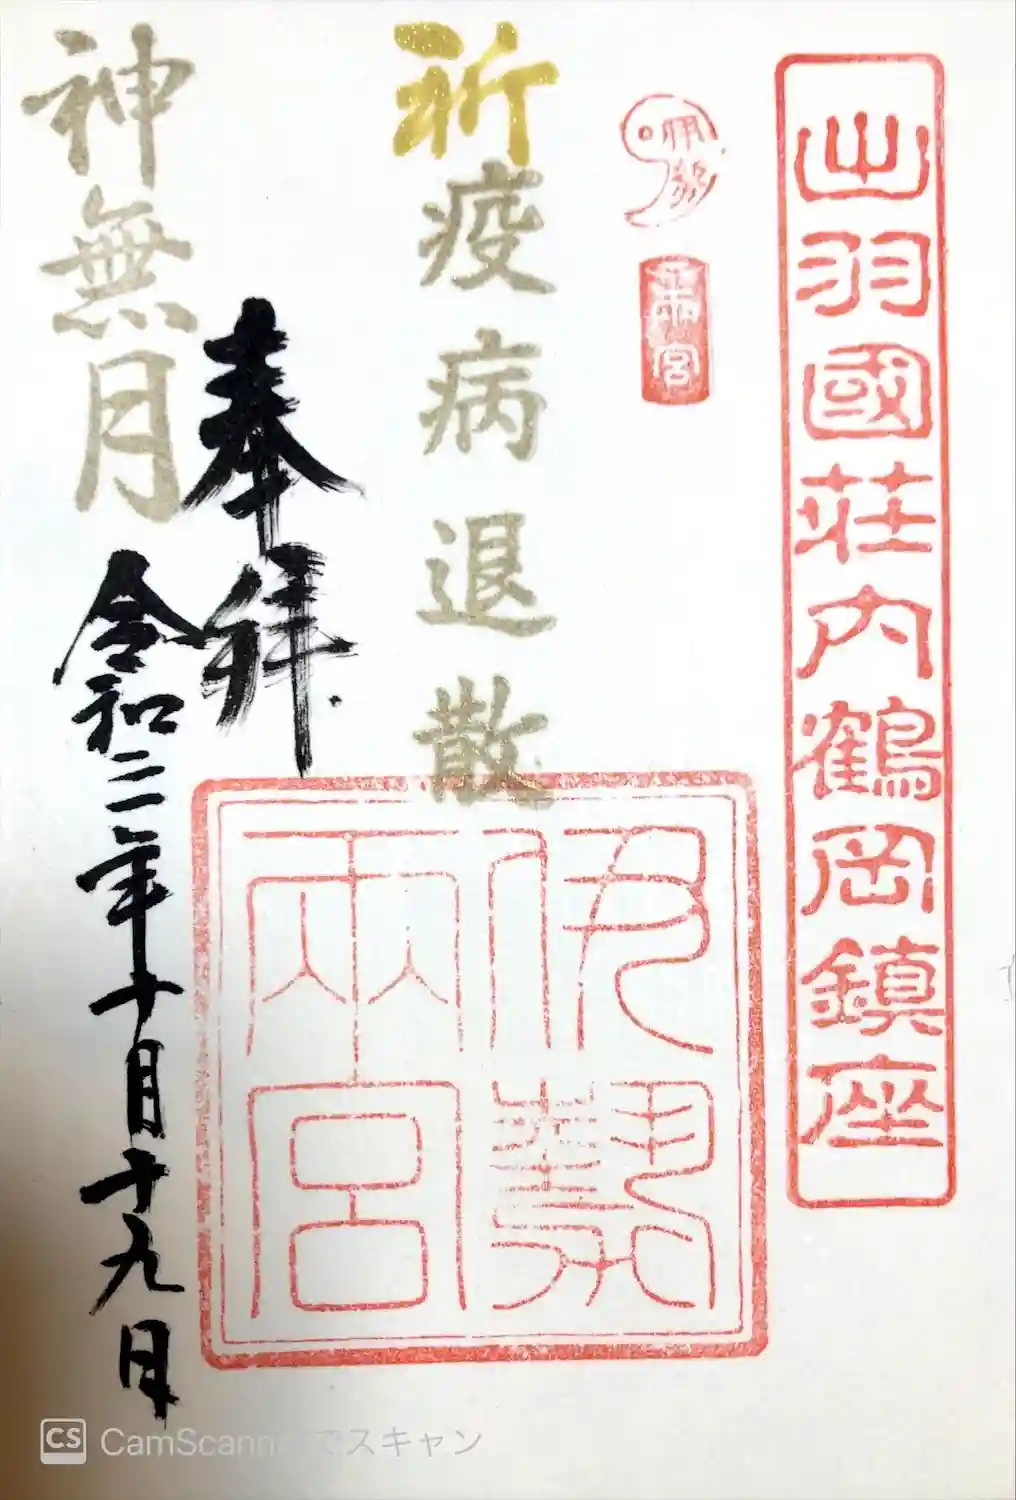 出羽國荘内鶴岡鎮座
伊勢
両宮
祈疫病退散
伊勢
両宮
奉拝
神無月
令和二年十月十九日
CS CamScannerでスキャン